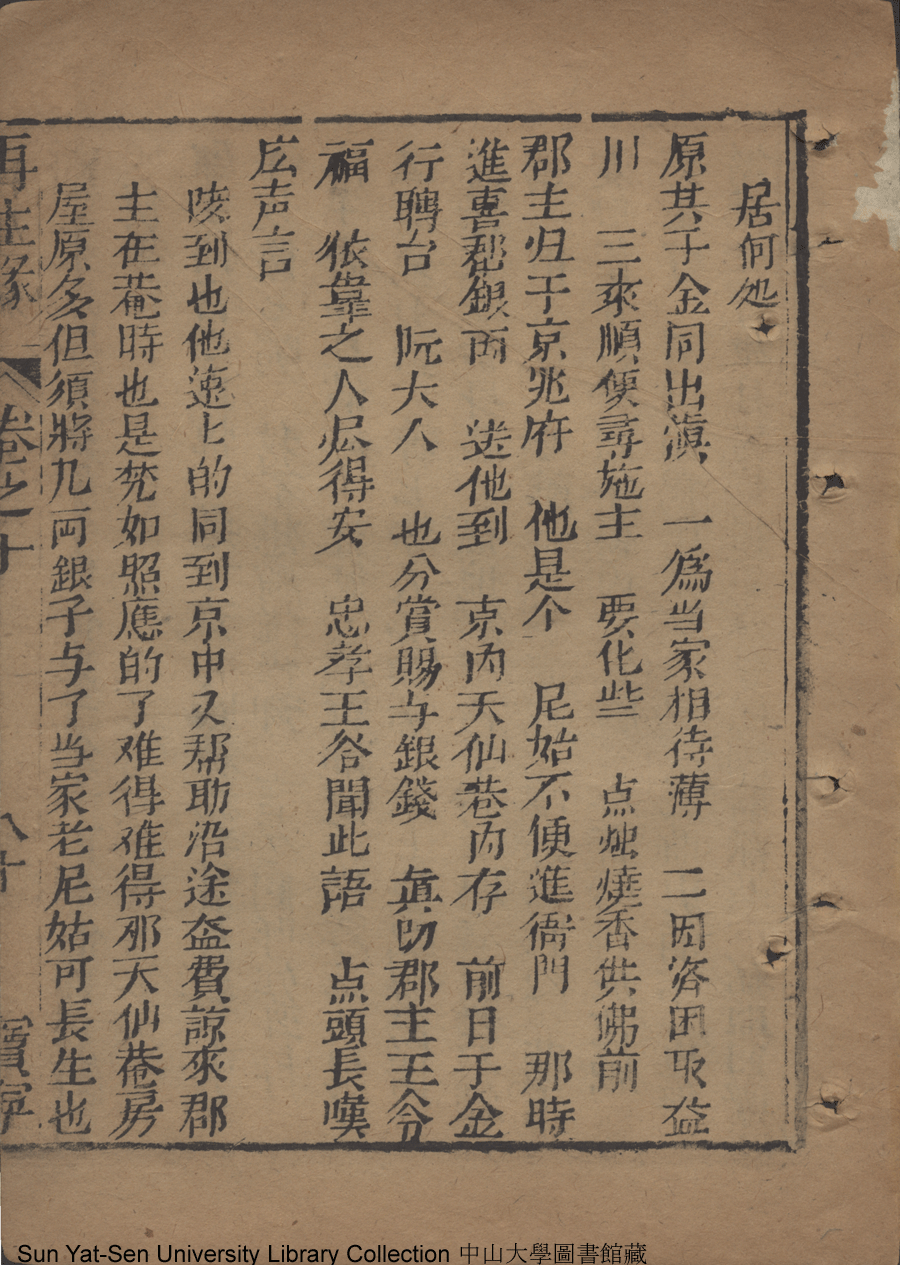 居何処
原其子金同出滇 一爲当家相待薄 二因客困取盆
川 三來順便尋施主 要化些 点烛燒香供佛前
郡主归于京兆府 他是个 尼姑不便進衙門 那時
進喜郡銀両 送他到 京内天仙巷内存 前日于金
行聘台 阮大人 也分賞賜与銀錢 真的郡主王令
福 依靠之人必得安 忠孝王谷聞此語 点頭長嘆
広声言
唛到也他速上的同到京中又帮助沿途盆費諒來郡
主在菴時也是梵如照應的了难得难得那天仙菴房
屋原多但須將几両銀子与了当家老尼姑可長生也
再生緣 卷之十 八十 寶寧
Sun Yat-Sen University Library Collection 中山大學圖書館藏